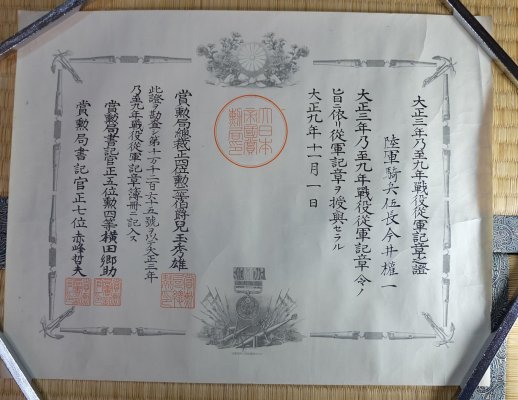 大正三年乃至九年戰役從軍記章之證
陸軍騎兵伍長今井權一
大正三年乃至九年戰役從軍記章令ノ
旨ニ依リ從軍記章ヲ授與セラル
大正九年十一月一日
大日本帝國賞勲局印
賞勲局總裁正四位勲一等伯爵兒玉秀雄
此證ヲ勘査シ第十一万十二百六十五號ヲ以テ大正三年
乃至九年戰役從軍記章簿冊ニ記入ス
賞勲局書記官正五位勲四等横田郷助
賞勲局書記官正七位赤峰哲夫